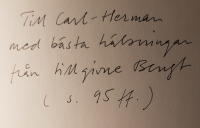 Till Carl-Herman
med bästa hälsningar
från tillgivne Bengt
( s. 95 ff. )